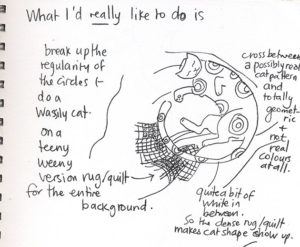 What I'd really like to do is
break up the
regularity of
the circles (-
do a
Wassily cat
on a
teeny
weeny
version rug/quilt
for the entire
background.
cross between
a possibly real
cat pattern
and
totally
geomet-
ric
+
not
real
colours
at all.
quite a bit of
white in
between.
So the dense rug/quilt
makes cat shape show up.